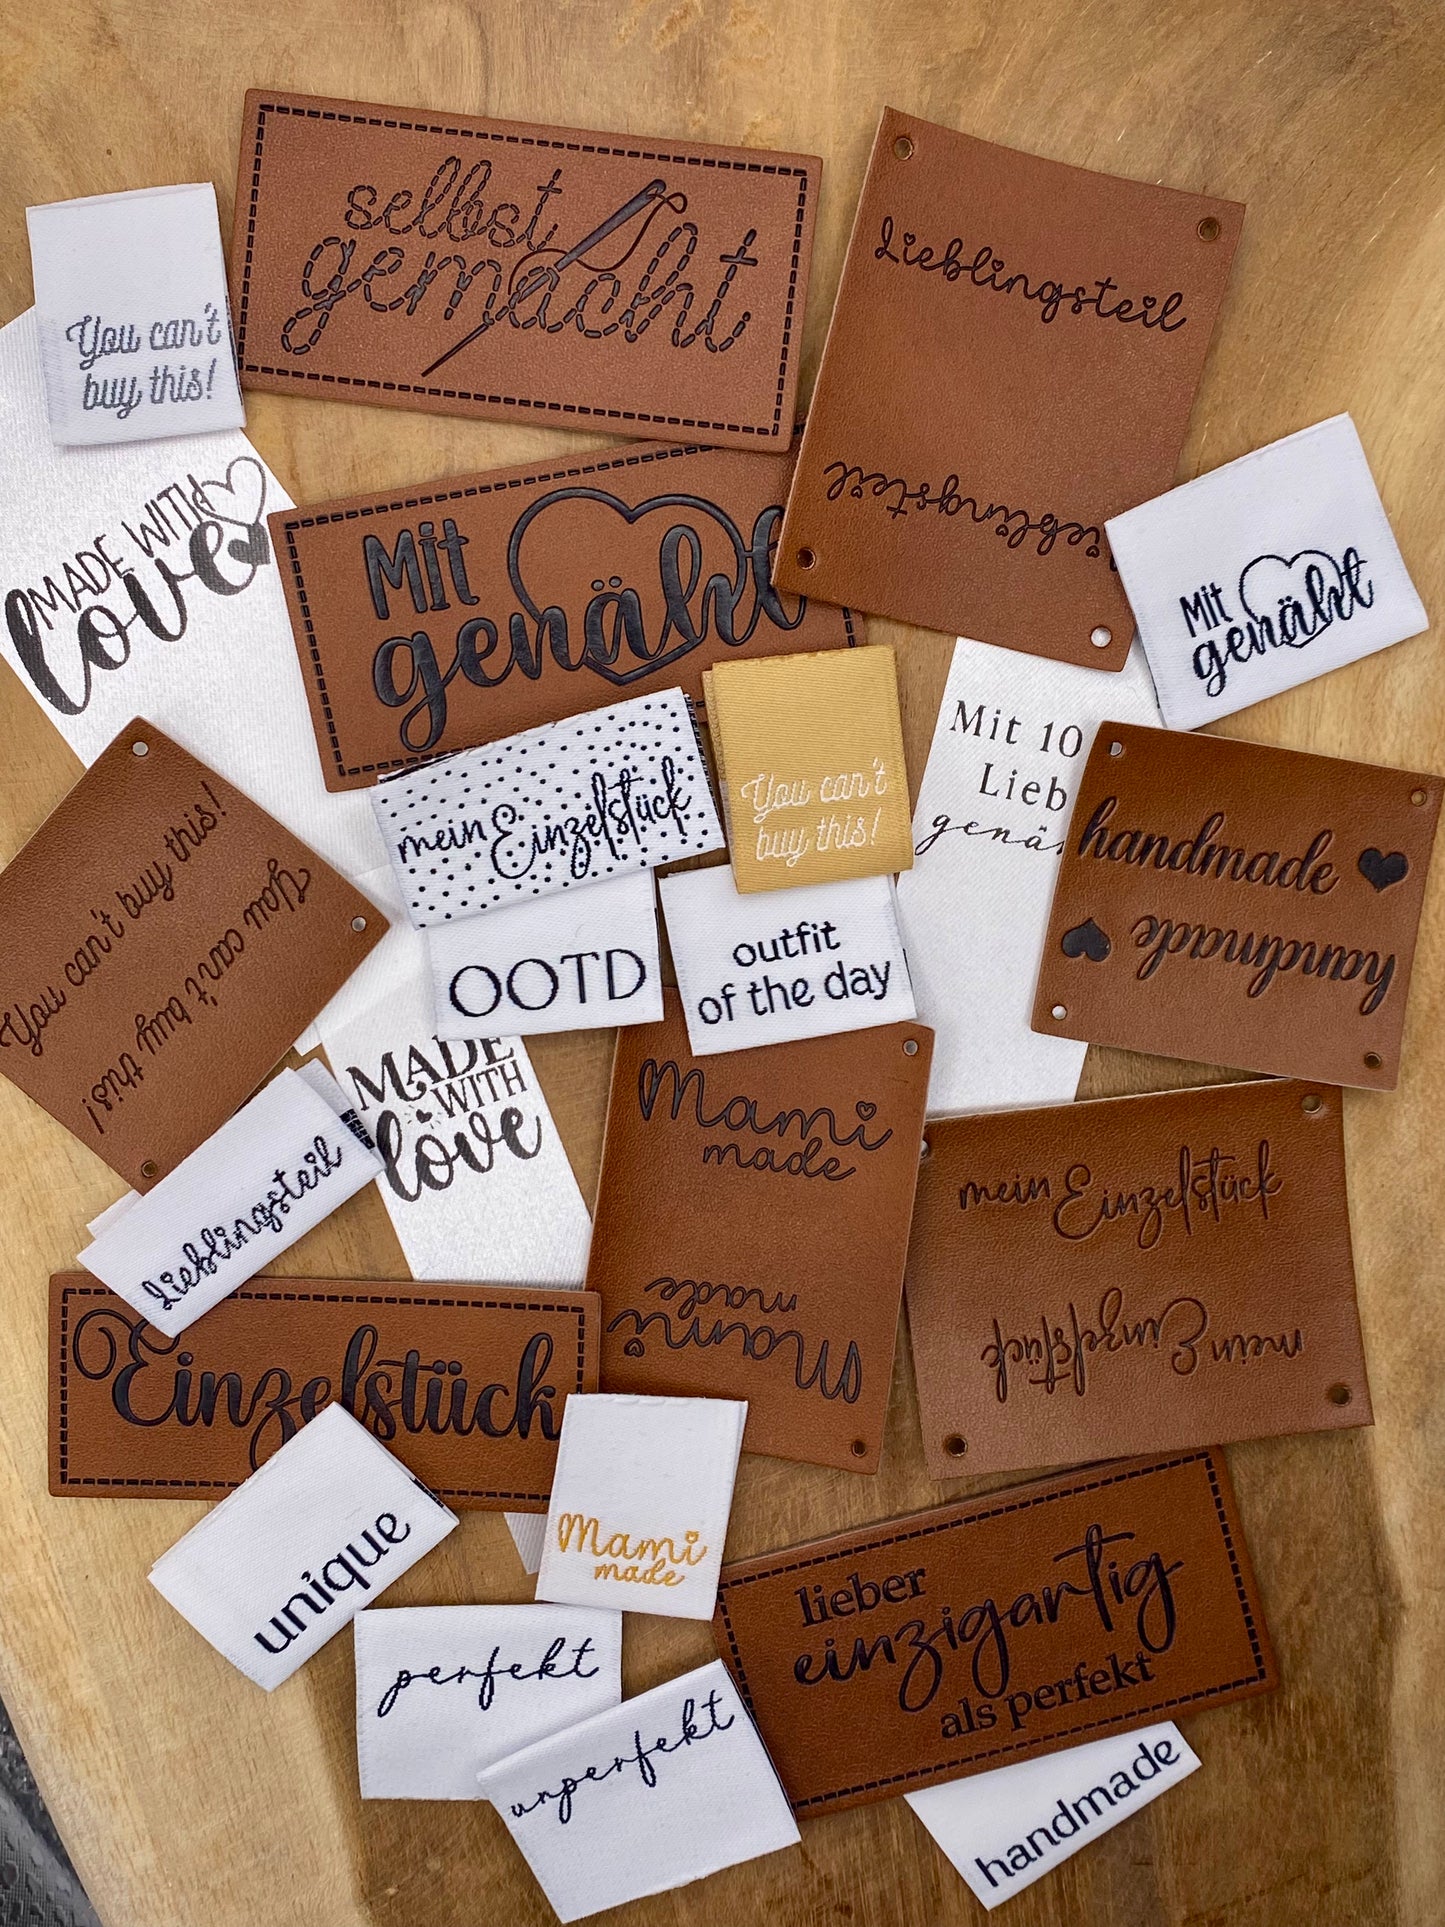 selbst
gemacht
Lieblingsteil
Lieblingsteil
You can't
buy this!
MADE WITH
love
Mit
genäht
Mit
genäht
Mit 10
Lieb
genä
mein Einzelstück
You can't
buy this!
handmade
handmade
You can't buy this!
You can't buy this!
OOTD
outfit
of the day
MADE
WITH
love
Mami
made
Mami
made
mein Einzelstück
mein Einzelstück
Lieblingsteil
Einzelstück
unique
Mami
made
perfekt
unperfekt
lieber
einzigartig
als perfekt
handmade